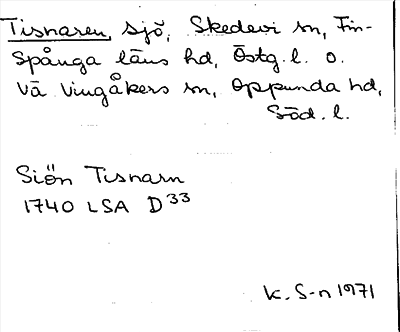 Tisnaren, sjö, Skedevi sn, Fin-
spånga läns hd, Östg. l. o.
Vä Vingåkers sn, Oppunda hd,
Söd. l.
Siön Tisnarn
1740 LSA D33
K. S-n 1971